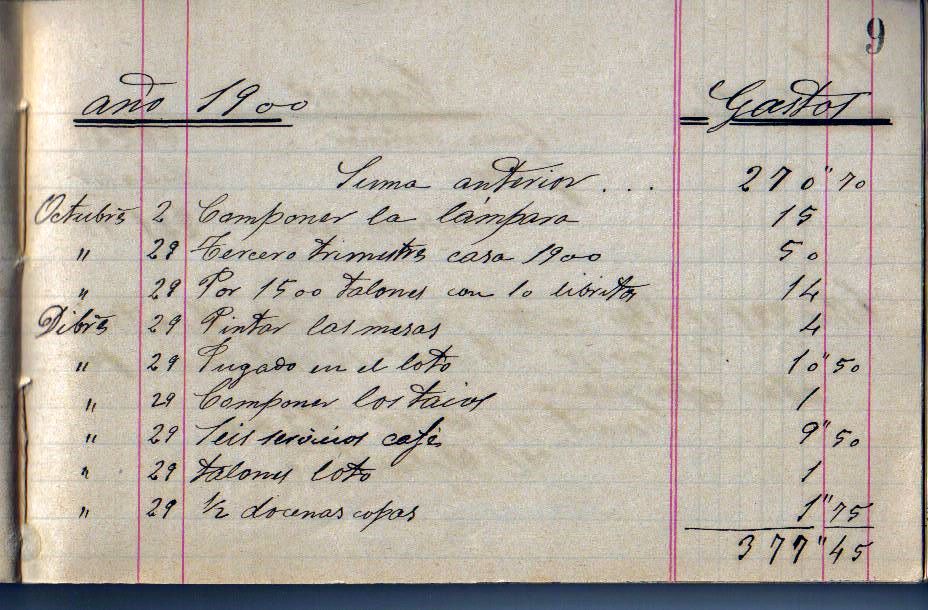 9
año 1900 Gastos
Suma anterior . . . 270" 70
Octubre 2 Componer la lámpara 15
" 29 Tercero trimestre casa 1900 50
" 29 Por 1500 talones con 10 libritos 14
Dibre 29 Pintar las mesas 4
" 29 Jugado en el loto 10" 50
" 29 Componer los tacos 1
" 29 Seis servicios café 9" 50
" 29 talones loto 1
" 29 1/2 docenas copas 1" 75
377" 45